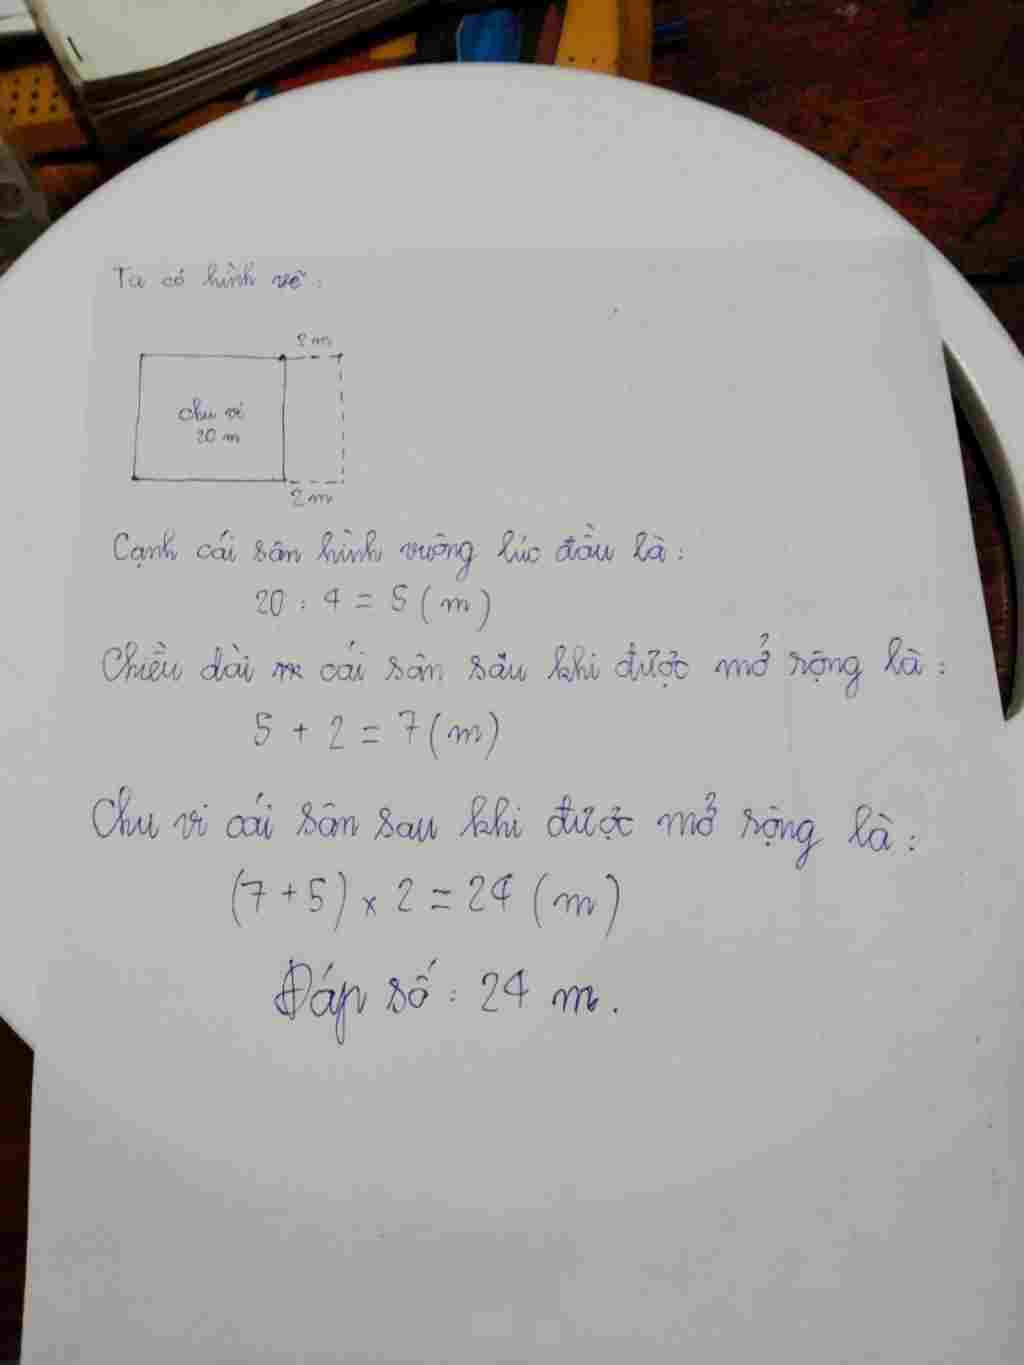 Ta có hình vẽ:
2 m
chu vi
20 m
2 m
Cạnh cái sân hình vuông lúc đầu là:
20 : 4 = 5 (m)
Chiều dài cái sân sau khi được mở rộng là:
5 + 2 = 7 (m)
Chu vi cái sân sau khi được mở rộng là:
(7 + 5) x 2 = 24 (m)
Đáp số: 24 m.